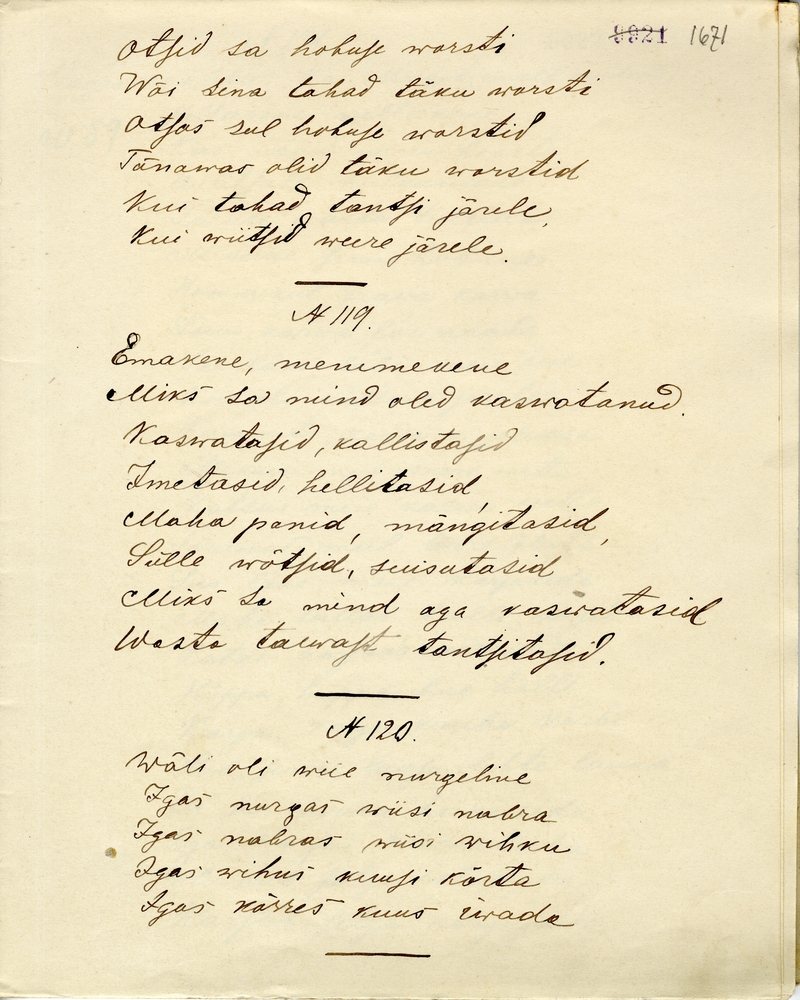 8921 1671
Otsid sa hobuse warsti
Wõi sina tahad täku warsti
Otsas sul hobuse warstid
Tänawas olid täku warstid
Kui tahad tantsi järele,
Kui wiitsid weere järele.
N 119.
Emakene, memmekene
Miks sa mind oled kaswatanud.
Kaswatasid, kallistasid
Imetasid, hellitasid,
Maha panid, mängitasid,
Sülle wõtsid, suisutasid
Miks sa mind aga kaswatasid
Wasta taewast tantsitasid.
N 120.
Wäli oli wiie nurgeline
Igas nurgas wiisi nabra
Igas nabras wiisi wihku
Igas wihus kuusi kõrta
Igas kõrres kuus iwada